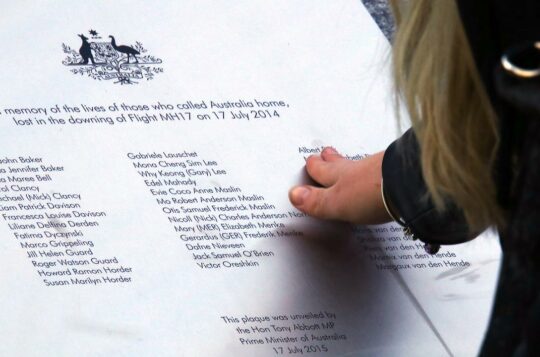 memory of the lives of those who called Australia home,
lost in the downing of Flight MH17 on 17 July 2014
John Baker
Jennifer Baker
Maree Bell
Carol Clancy
Michael (Mick) Clancy
Liam Patrick Davison
Francesca Louise Davison
Liliane Derden
Fatima Dyczynski
Marco Grippeling
Jill Helen Guard
Roger Watson Guard
Howard Ramon Horder
Susan Marilyn Horder
Gabriele Lauschet
Mona Cheng Sim Lee
Why Keong (Gary) Lee
Edel Mahady
Evie Coco Anne Maslin
Mo Robert Anderson Maslin
Otis Samuel Frederick Maslin
Nicoll (Nick) Charles Anderson
Mary (MER) Elizabeth Menke
Gerardus (GER) Frederik Menke
Dafne Nieveen
Jack Samuel O'Brien
Victor Oreshkin
Albert
van der
van den
Marks van den Hende
Margaux van den Hende
This plaque was unveiled by
the Hon Tony Abbott MP
Prime Minister of Australia
17 July 2015